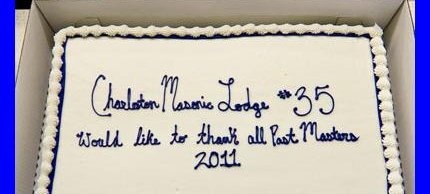 Charleston Masonic Lodge #35
Would like to thank all Past Masters
2011